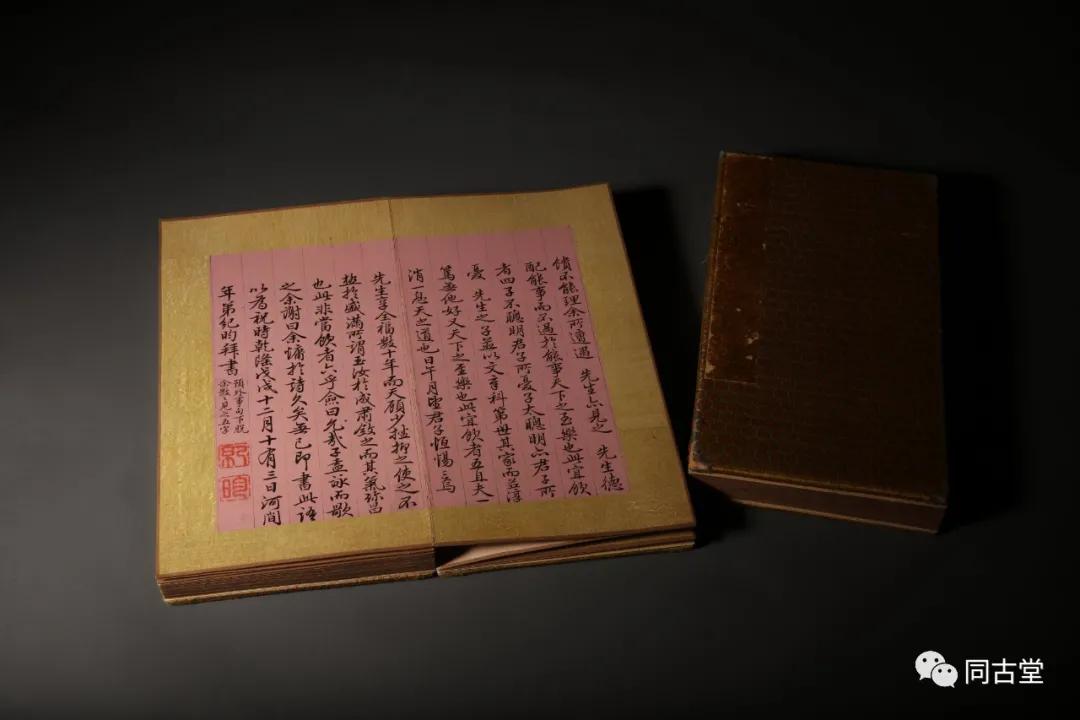 憒不能理余所遭遇　先生亦見之　先生德
配能事而不過於能事天下之至樂也此宜飲
者四子不聰明君子所憂子太聰明亦君子所
憂　先生之子并以文章科第世其家而益淳
篤無他好又天下之至樂也此宜飲者五且夫一
消一息天之道也日午月望君子恒惕惕焉
先生享全福數十年而天顧少挫抑之使之不
極於盛滿所謂玉汝於成肅殺之而其氣彌昌
也此非當飲者六乎僉曰允哉子盍詠而歌
之余謝曰余慵於詩久矣無已即書此語
以為祝時乾隆戊戌十二月十有三日河間
年弟紀昀拜書
預外事句下脫
余數見之五字
紀
昀
同古堂